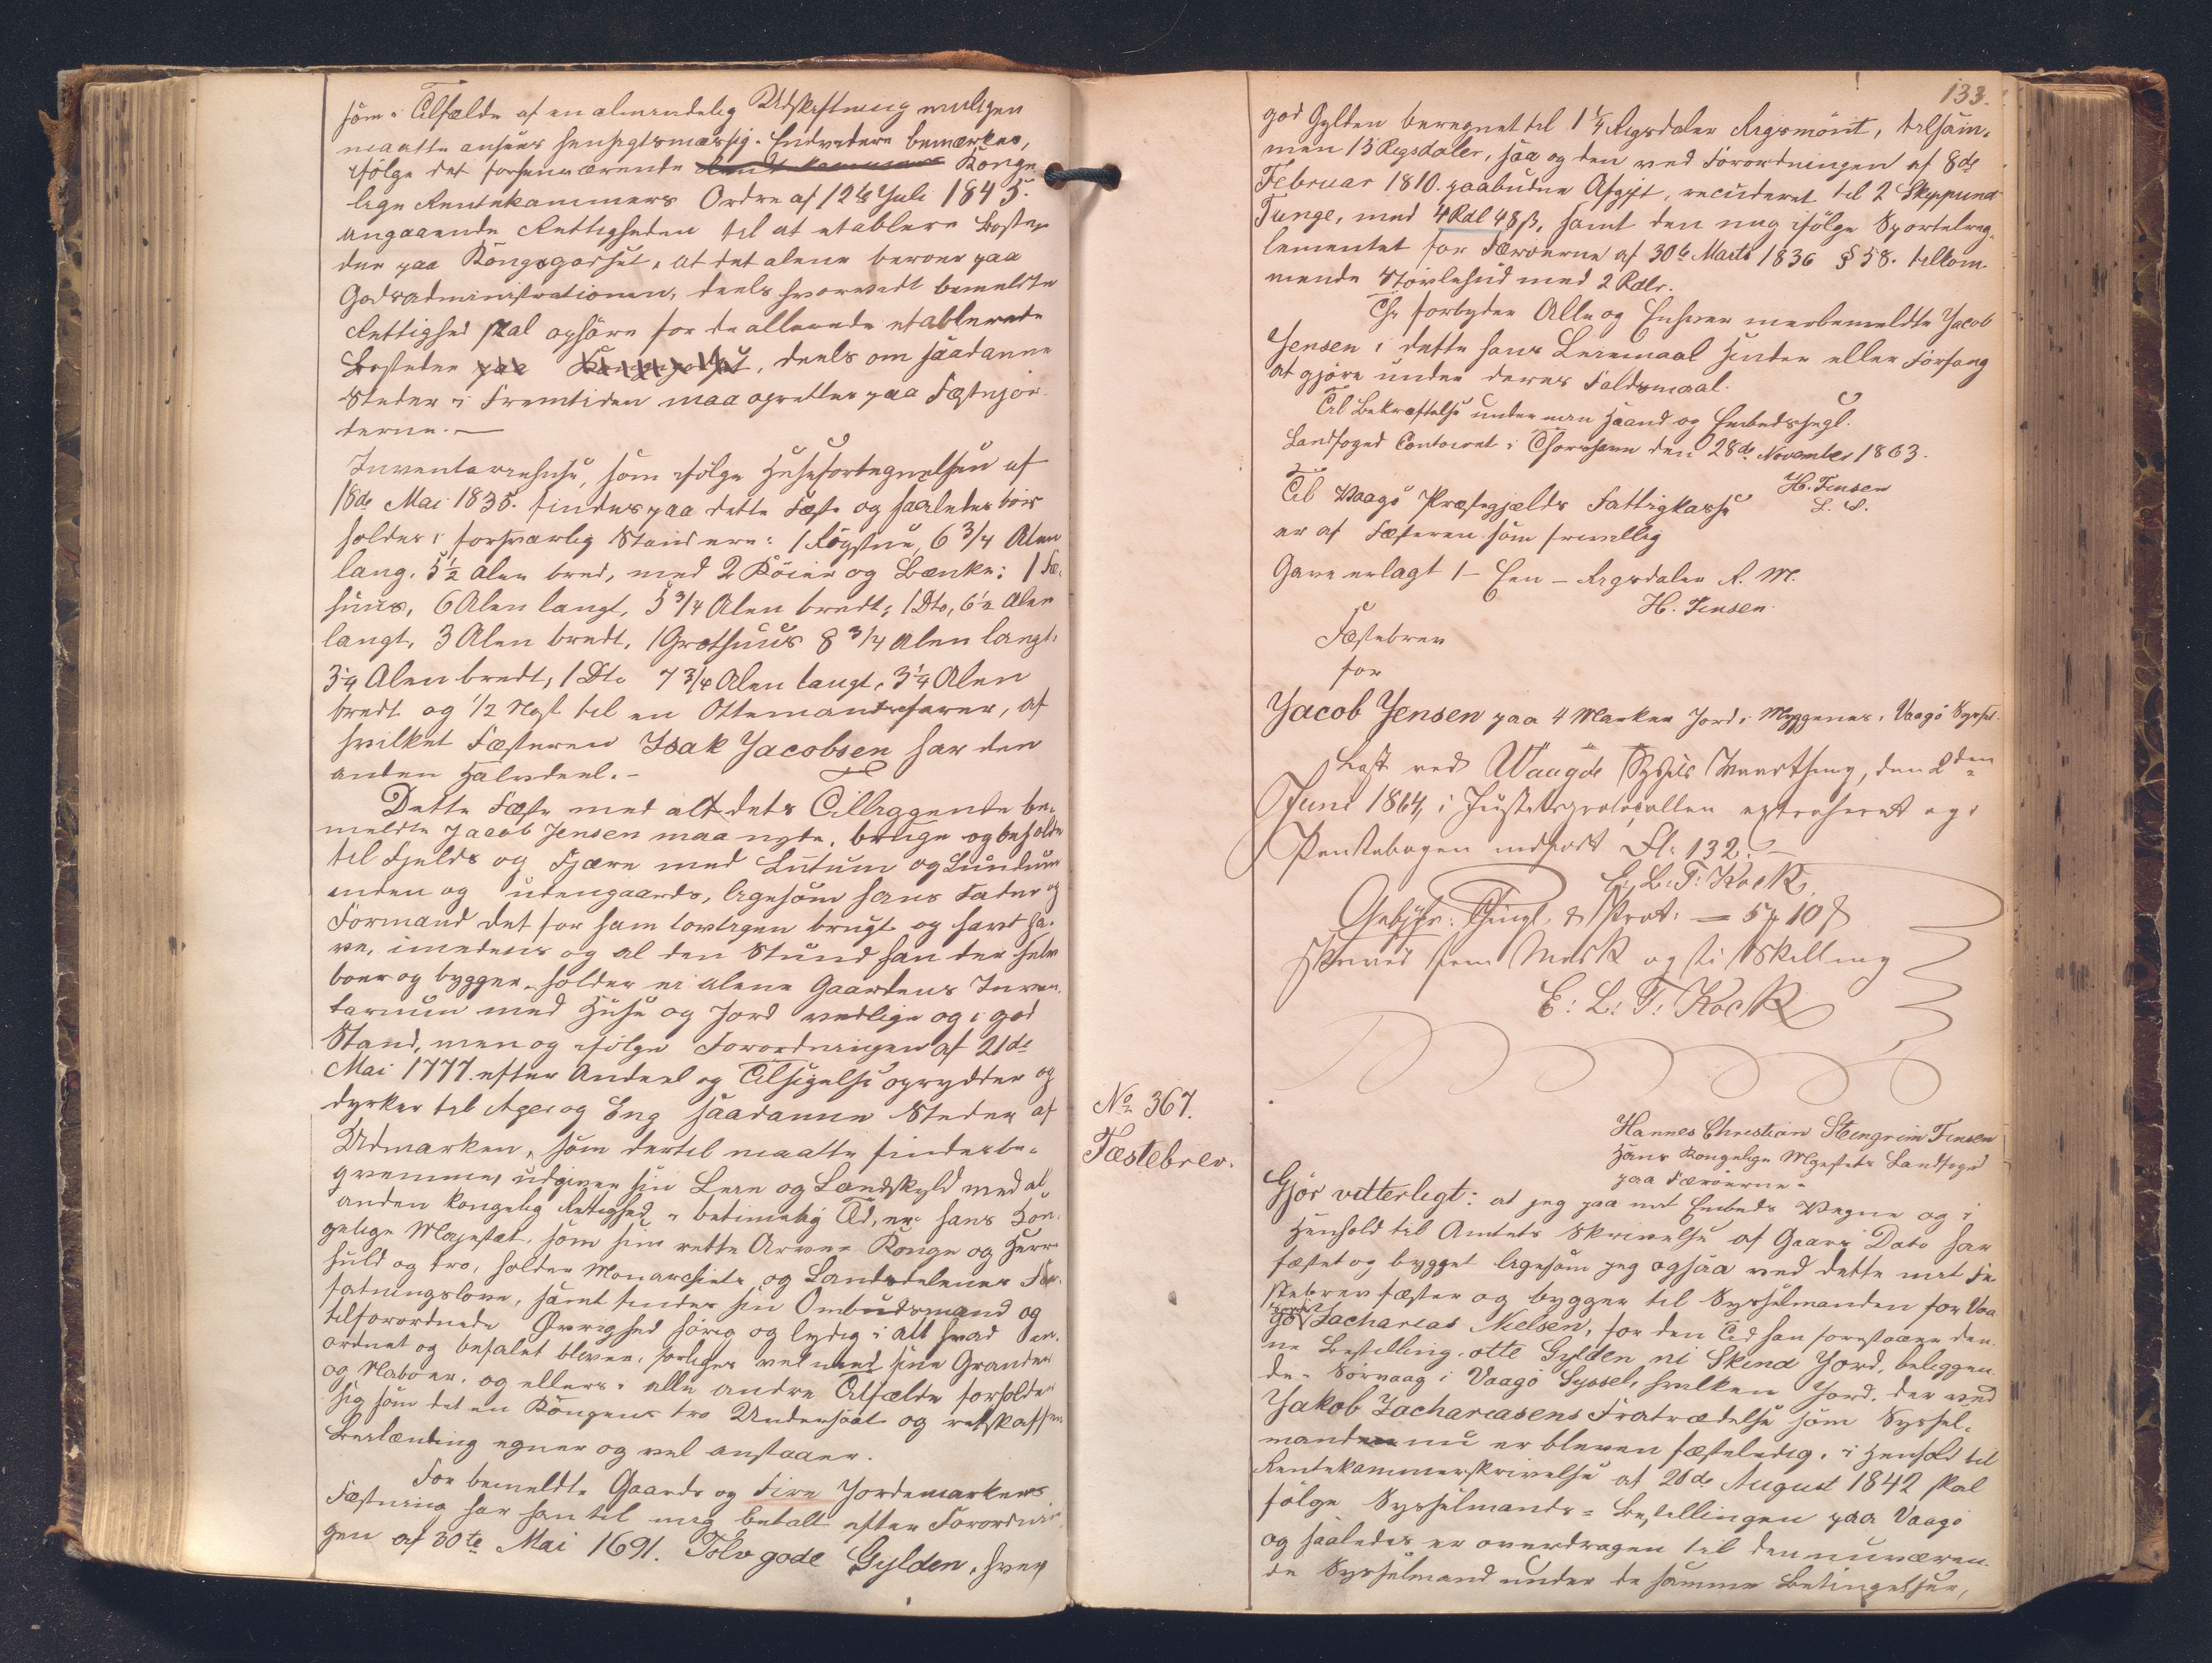 som i Tilfælde af en almindelig Udskiftning muligen
maatte ansees hensigtsmæssig. Endvidere bemærkes,
ifølge det forhenværende Rentekammers Konge
lige Rentekammers Ordre af 12te Juli 1845.
angaaende Rettigheden til at etablere Boste-
der paa Kongsgodset, at det alene beroer paa
Godsadministrationen, deels hvorvidt bemeldte
Rettighed skal ophöre for de allerede etablerede
Bosteder paa Kongsgodset, deels om saadanne
Steder i Fremtiden maa oprettes paa Fæstejor-
derne.
Inventariehuse, som ifølge Husefortegnelsen af
18de Mai 1838. findes paa dette Fæste og saaledes bör
holdes i forsvarlig Stand ere: 1 Rögstue, 6 3/4 Alen
lang, 5 1/2 Alen bred, med 2 Köier og Bænke; 1 Fæ-
huus, 6 Alen langt, 3 3/4 Alen bredt; 1 Dto, 6 1/2 Alen
langt, 3 Alen bredt, 1 Græthuus 8 3/4 Alen langt,
3 1/4 Alen bredt, 1 Dto 7 3/4 Alen langt, 3 1/4 Alen
bredt og 1/2 Nøst til en Ottemandsfarer, af
hvilket Fæsteren Isak Jacobsen har den
anden Halvdeel.-
Dette Fæste med alt dets Tilliggende be-
meldte Jacob Jensen maa nyde, bruge og beholde
til Fjelds og Fjære med Lutum og Lundum
inden og udengaards, ligesom hans Fader og
Formand det for ham lovligen brugt og havt ha-
ve, imedens og al den Stund han der selv
boer og bygger, holder ei alene Gaardens Inven-
tarium med Huse og Jord vedlige og i god
Stand, men og ifølge Forordningen af 21de
Mai 1777. efter Andeel og Tilsigelse oprydder og
dyrker til Ager og Eng saadanne Steder af
Udmarken, som dertil maatte findes be-
qvemme, udgiver sin Leie og Landskyld med al
anden kongelig Rettighed i betimelig Tid, er Hans Kon-
gelige Majestæt, som sin rette Arve- Konge og Herre
huld og tro, holder Monarkiets og Landsdelenes For-
fatningslove, samt findes sin Ombudsmand og
tilforordnede Øvrighed hörig og lydig i alt hvad an-
ordnet og befalet bliver, forliges vel med sine Grander
og Naboer, og ellers i alle andre Tilfælde forholder
sig som det en Kongens tro Undersaat og retskaffen
Leilænding egner og vel anstaaer.
For bemeldte Gaards og Fire Jordemarkers
Fæstning har han til mig betalt efter Forordnin-
gen af 30te Mai 1691. Tolv gode Gylden, hver
133.
god Gylden beregnet til 1 1/4 Rigsdaler Rigsmönt, tilsam-
men 15 Rigsdaler, saa og den ved Forordningen af 8de
Februar 1810. paabudne Afgift, reduceret til 2 Skippund
Tunge, med 4 Rdl 48 ß, samt den mig ifølge Sportelreg-
lementet for Færøerne af 30te Marts 1836 § 58. tilkom-
mende Stövlehud med 2 Rdlr.
Thi forbydes Alle og Enhver merbemeldte Jacob
Jensen i dette hans Leiemaal Hinder eller Forfang
at gjöre under deres Faldsmaal.
Til Bekræftelse under min Haand og Embedssegl.
Landfoged Contoiret i Thorshavn den 28de November 1863.
H. Finsen
L. S.
Til Vaagö Præstegjælds Fattigkasse
er af Fæsteren som frivillig
Gave erlagt 1- Een - Rigsdaler R. M.
H. Finsen.
Fæstebrev
for
Jacob Jensen paa 4 Marker Jord i Myggenæs, Vaagö Syssel.
Læst ved Waagöe Syssels Vaarthing, den 2den
Juni 1864, i Justitsprotocollen extraheret og i
Pantebogen indfört Fl: 132.
E. L: T: Kock.
Gebyhr: Thingl. & Prot: = 5 Mk 10 ß
skrives fem Mark og ti Skilling
E: L: T: Kock
No 367.
Fæstebrev.
Hannes Christian Steingrim Finsen
Hans Kongelige Majestæts Landfoged
paa Færøerne.
Gjör vitterligt: at jeg paa mit Embeds Vegne og i
Henhold til Amtets Skrivelse af Gaars Dato har
fæstet og bygget ligesom jeg ogsaa ved dette mit Fæ
stebrev fæster og bygger til Sysselmanden for Vaa
gö Zacharias Nielsen, for den Tid han forestaaer den-
ne Bestilling, otte Gylden ni Skind Jord, beliggen-
de i Sörvaag i Vaagö Syssel, hvilken Jord, der ved
Jakob Zachariasens Fratrædelse som Syssel-
manden nu er bleven fæsteledig, i Henhold til
Rentekammerskrivelse af 20de August 1842 skal
følge Sysselmands-Bestillingen paa Vaagö
og saaledes er overdragen til den nuværen-
de Sysselmand under de samme Betingelser,